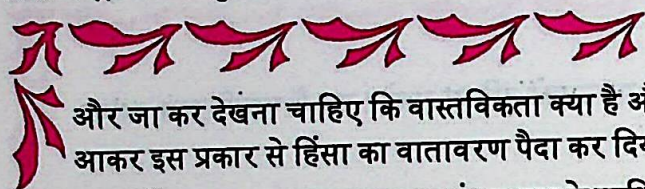 और जा कर देखना चाहिए कि वास्तविकता क्या है
आकर इस प्रकार से हिंसा का वातावरण पैदा कर